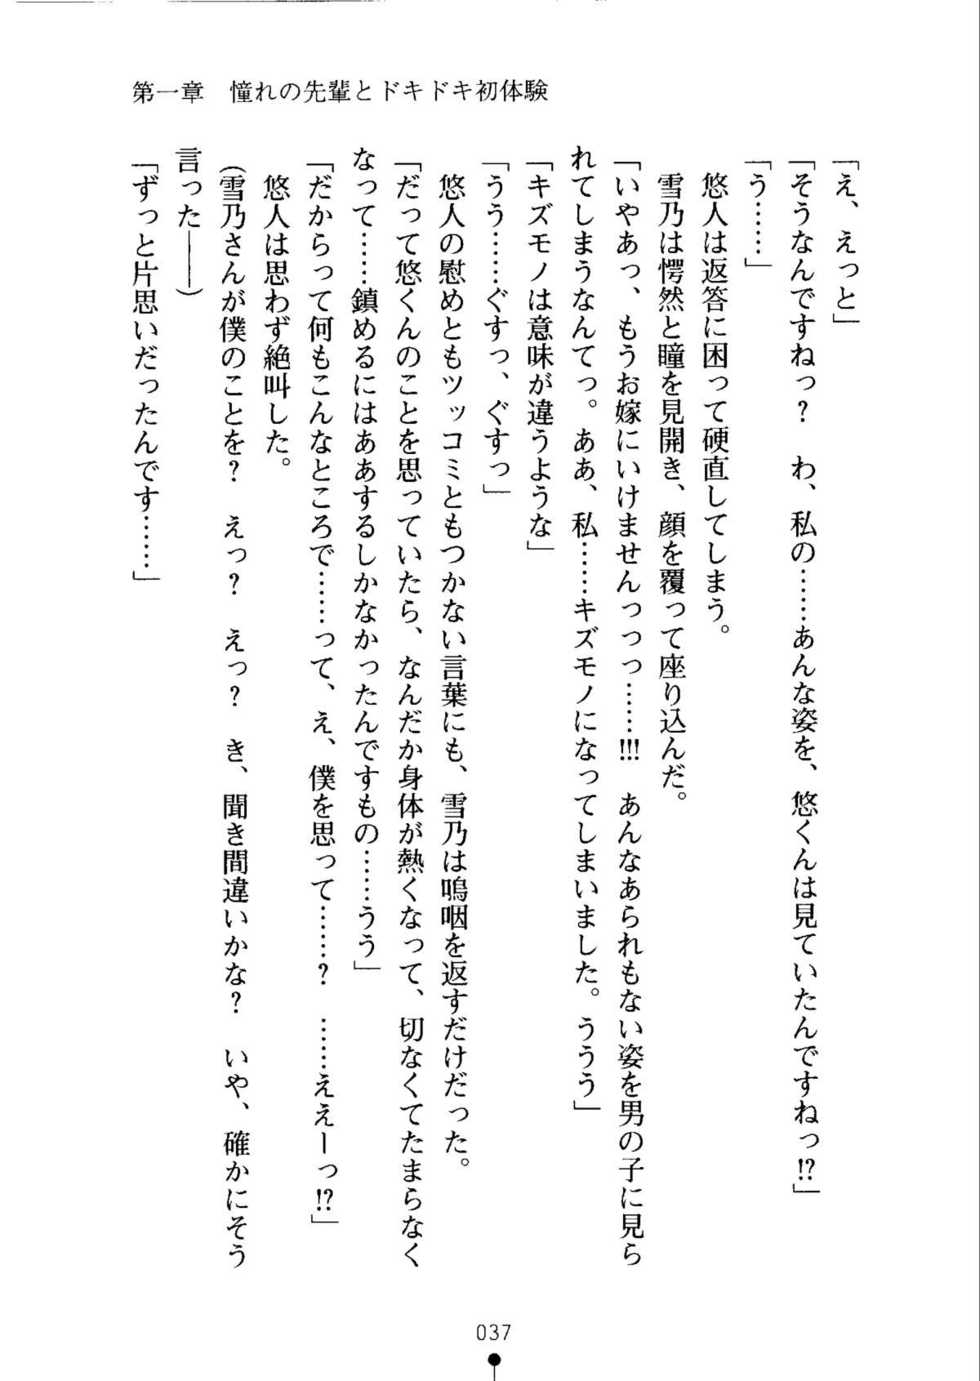 第一章　憧れの先輩とドキドキ初体験
「え、えっと」
「そうなんですねっ？　わ、私の……あんな姿を、悠くんは見ていたんですねっ!?」
「う……」
　悠人は返答に困って硬直してしまう。
　雪乃は愕然と瞳を見開き、顔を覆って座り込んだ。
「いやあっ、もうお嫁にいけませんっっっ……!!!　あんなあられもない姿を男の子に見ら
れてしまうなんてっ。ああ、私……キズモノになってしまいました。ううう」
「キズモノは意味が違うような」
「うう……ぐすっ、ぐすっ」
　悠人の慰めともツッコミともつかない言葉にも、雪乃は嗚咽を返すだけだった。
「だって悠くんのことを思っていたら、なんだか身体が熱くなって、切なくてたまらなく
なって……鎮めるにはああするしかなかったんですもの……うう」
「だからって何もこんなところで……って、え、僕を思って……？　……ええーっ!?」
　悠人は思わず絶叫した。
（雪乃さんが僕のことを？　えっ？　えっ？　き、聞き間違いかな？　いや、確かにそう
言った――）
「ずっと片思いだったんです……」
037